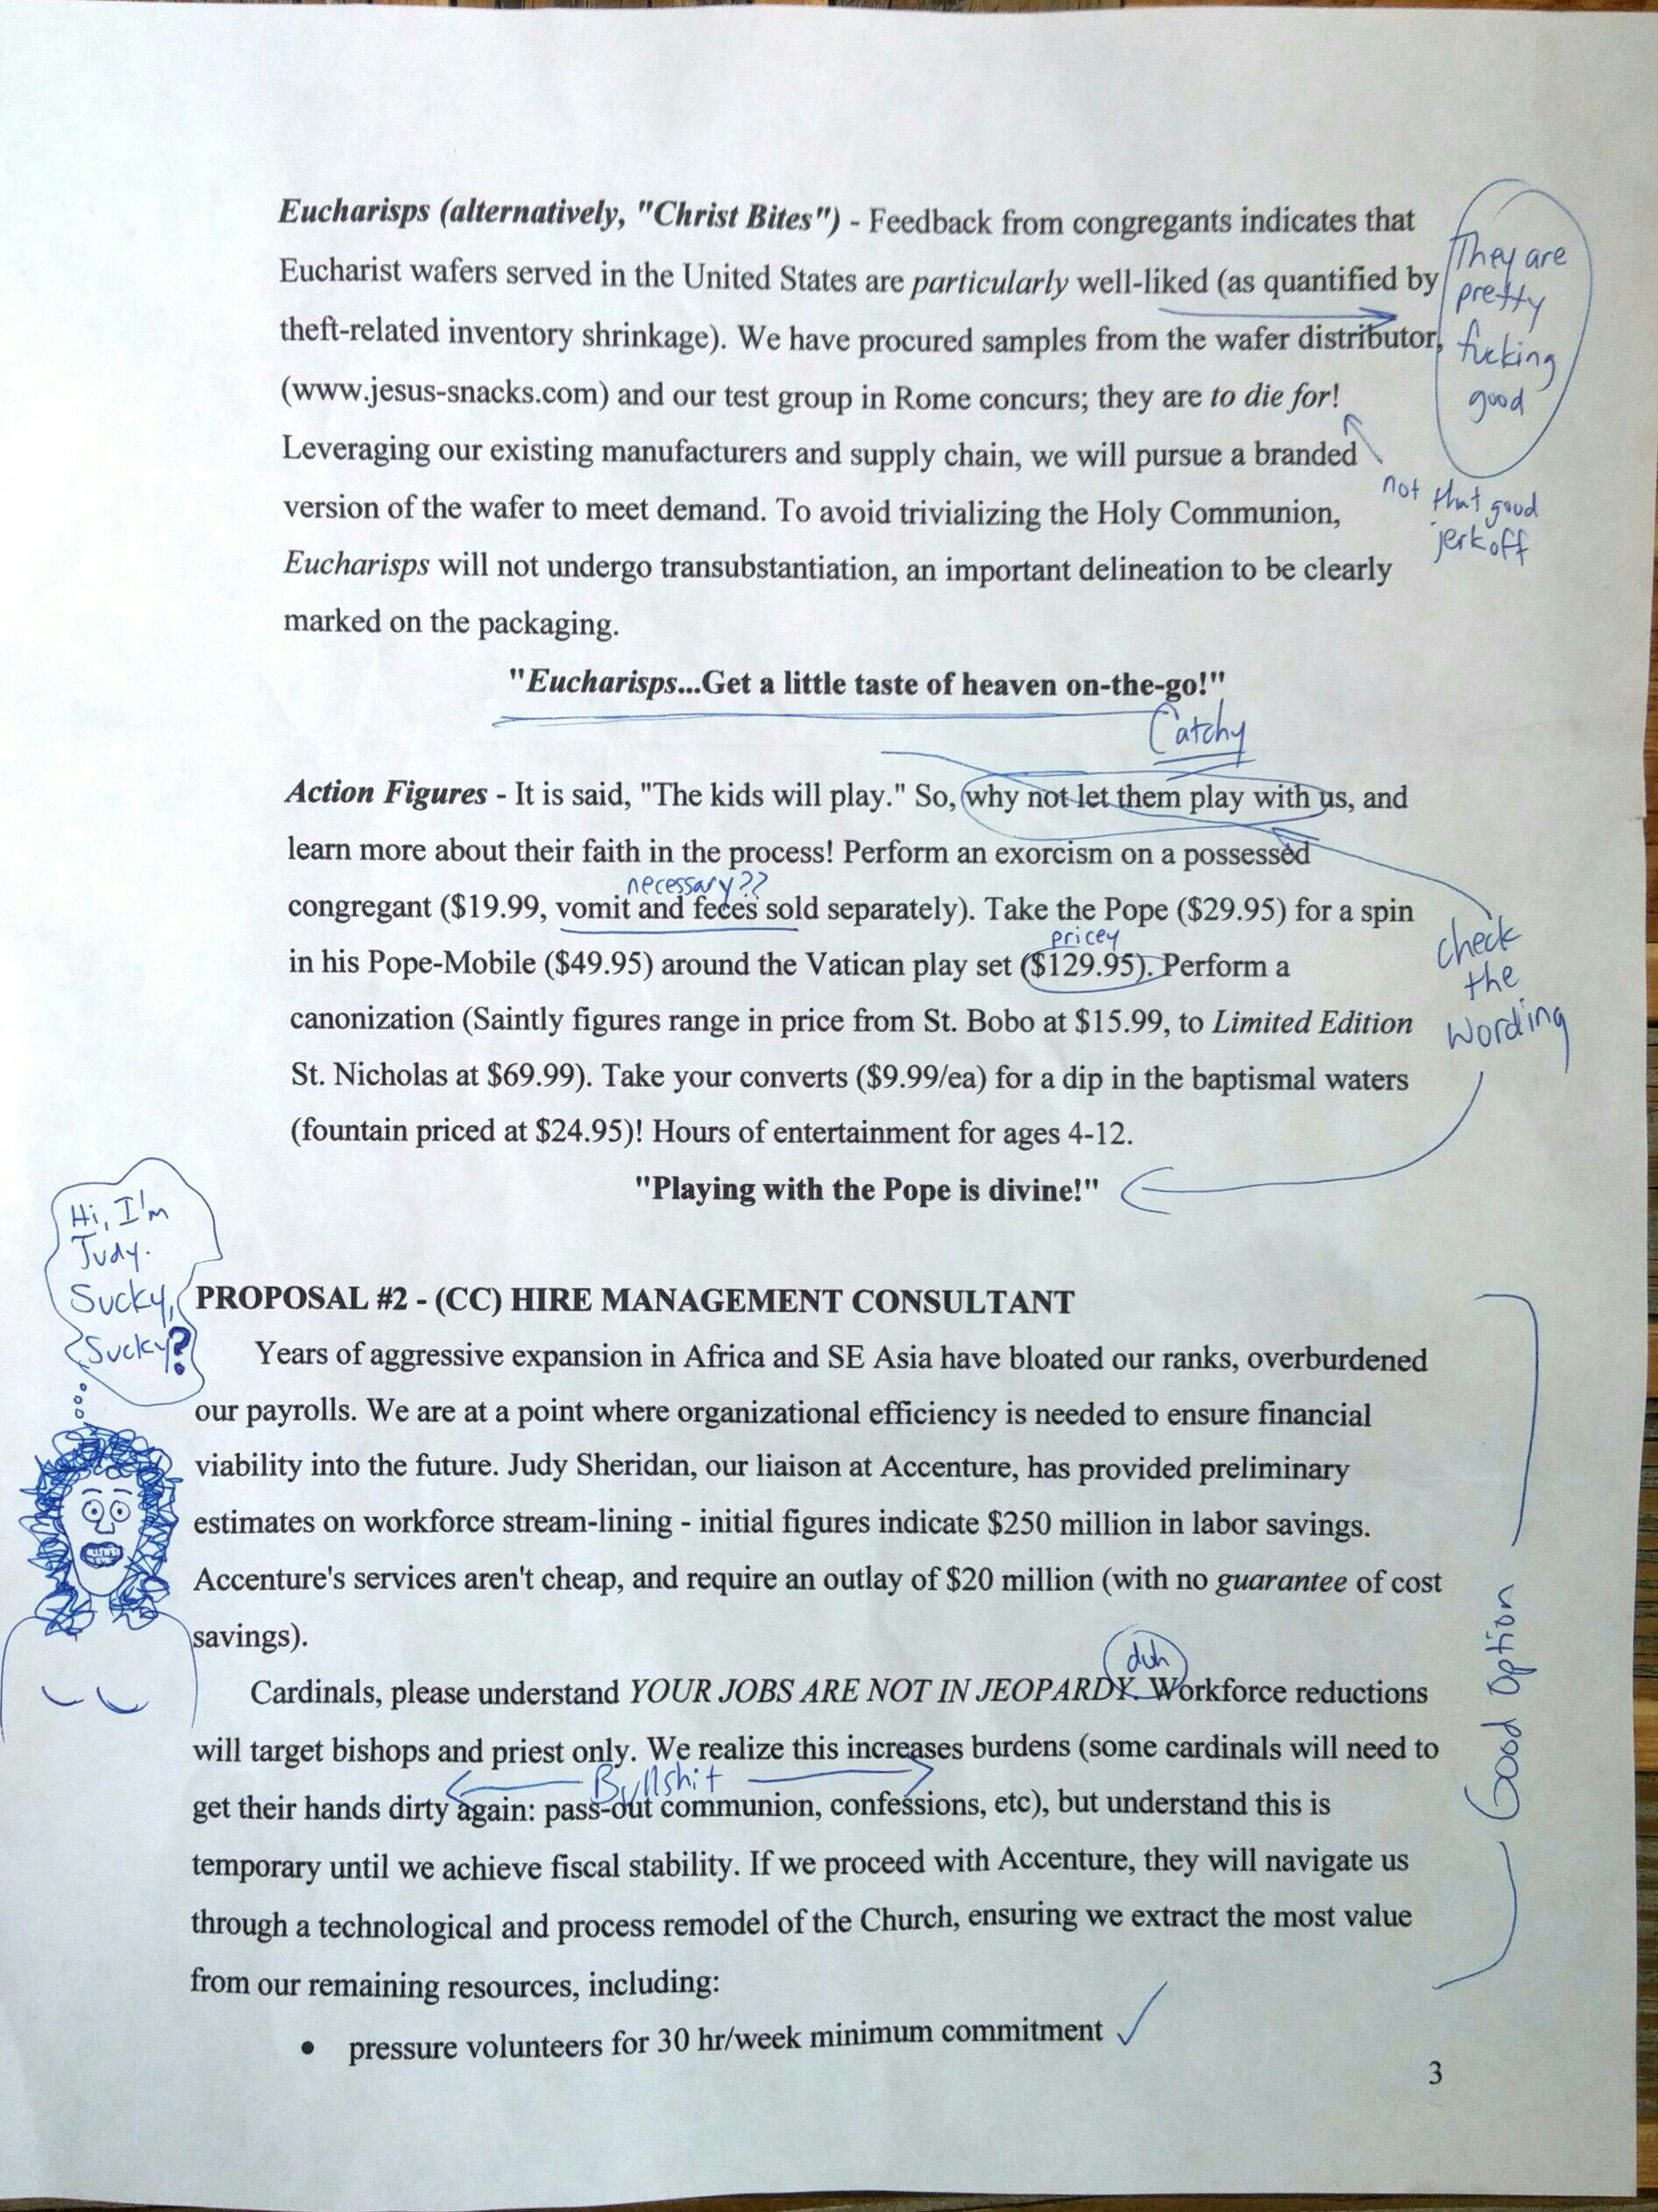 Eucharisps (alternatively, "Christ Bites") - Feedback from congregants indicates that
Eucharist wafers served in the United States are particularly well-liked (as quantified by
theft-related inventory shrinkage). We have procured samples from the wafer distributor,
(www.jesus-snacks.com) and our test group in Rome concurs; they are to die for!
Leveraging our existing manufacturers and supply chain, we will pursue a branded
version of the wafer to meet demand. To avoid trivializing the Holy Communion,
Eucharisps will not undergo transubstantiation, an important delineation to be clearly
marked on the packaging.
They are
pretty
fucking
good
not that good
jerkoff
"Eucharisps...Get a little taste of heaven on-the-go!"
Catchy
Action Figures - It is said, "The kids will play." So, why not let them play with us, and
learn more about their faith in the process! Perform an exorcism on a possessed
necessary??
congregant ($19.99, vomit and feces sold separately). Take the Pope ($29.95) for a spin
pricey
in his Pope-Mobile ($49.95) around the Vatican play set ($129.95). Perform a
canonization (Saintly figures range in price from St. Bobo at $15.99, to Limited Edition
St. Nicholas at $69.99). Take your converts ($9.99/ea) for a dip in the baptismal waters
(fountain priced at $24.95)! Hours of entertainment for ages 4-12.
check
the
wording
"Playing with the Pope is divine!"
Hi, I'm
Judy.
Sucky,
Sucky?
PROPOSAL #2 - (CC) HIRE MANAGEMENT CONSULTANT
Years of aggressive expansion in Africa and SE Asia have bloated our ranks, overburdened
our payrolls. We are at a point where organizational efficiency is needed to ensure financial
viability into the future. Judy Sheridan, our liaison at Accenture, has provided preliminary
estimates on workforce stream-lining - initial figures indicate $250 million in labor savings.
Accenture's services aren't cheap, and require an outlay of $20 million (with no guarantee of cost
savings).
duh
Cardinals, please understand YOUR JOBS ARE NOT IN JEOPARDY. Workforce reductions
will target bishops and priest only. We realize this increases burdens (some cardinals will need to
Bullshit
get their hands dirty again: pass-out communion, confessions, etc), but understand this is
temporary until we achieve fiscal stability. If we proceed with Accenture, they will navigate us
through a technological and process remodel of the Church, ensuring we extract the most value
from our remaining resources, including:
Good Option
• pressure volunteers for 30 hr/week minimum commitment ✓
3